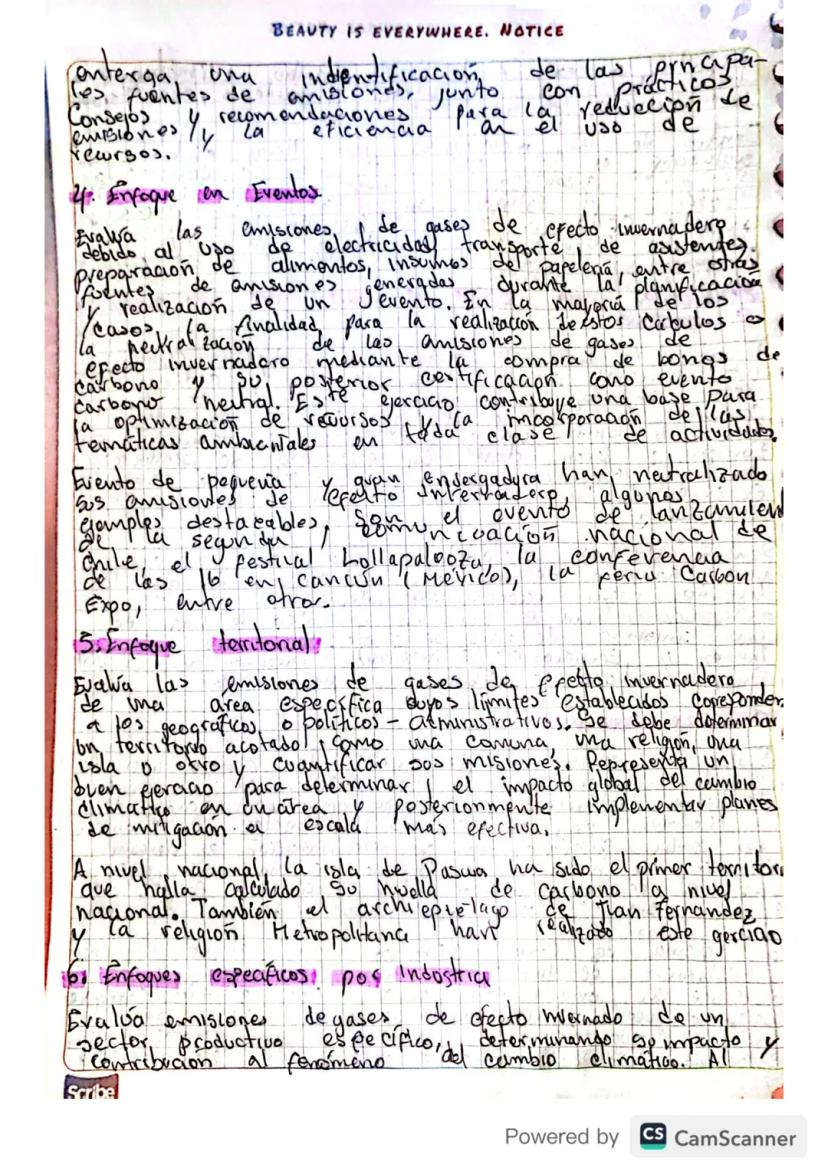 BEAUTY IS EVERYWHERE. NOTICE
enterga una indentificación de las princapa-
les fuentes de amisiones, junto con prácticos
Consejos y recomendaciones para la reducción de
emisiones y la eficiencia an el uso de
recursos.
4. Enfoque en Eventos
Evalúa las emisiones de gases de efecto invernadero
debido al uso de electricidad, transporte de asistentes,
preparación de alimentos, insumos del papelería, entre otras
fuentes de amisiones generadas durante la planificación
y realización de un evento. En la mayoría de los
casos, la finalidad para la realización de estos Cálculos es
la neutralización de las amisiones de gases de
efecto invernadero mediante la compra de bonos de
carbono y su posterior certificación como evento
carbono neutral. Este ejercicio contribuye una base para
la optimización de recursos y la incorporación de las
temáticas ambientales en toda clase de actividades.
Evento de pequeña y gran endergadura han neutralizado
sus amisiones de efecto Invernadero, algunos
ejemplos destacables, son el evento de lanzamien
de la segunda comunicación nacional de
Chile, el festival Lollapalooza, la conferencia
de las 16 en Cancún (México), la feria Carbon
Expo, entre otros.
5. Enfoque territorial
Evalúa las emisiones de gases de efecto invernadero
de una área específica cuyos límites establecidos coresponden
a los geográficos o políticos - administrativos. Se debe determinar
un territorio acotado, como una comuna, una religión, una
isla o otro y cuantificar sus misiones. Representa un
buen ejercicio para determinar el impacto global del cambio
climatico en un área y posterionmente implementar planes
de mitigación a escala más efectiva.
A nivel nacional, la isla de Pascua ha sido el primer territori
que halla calculado su huella de carbono a nivel
nacional. También el archiepiélago de Juan Fernandez
y la religión Metropolitana han realizado este gercicio
6. Enfoques específicos por Industria
Evalúa emisiones de gases de efecto invernado de un
sector productivo específico, determinando su impacto y
contribución al fenómeno del cambio climático. Al
Scribe
Powered by CS CamScanner